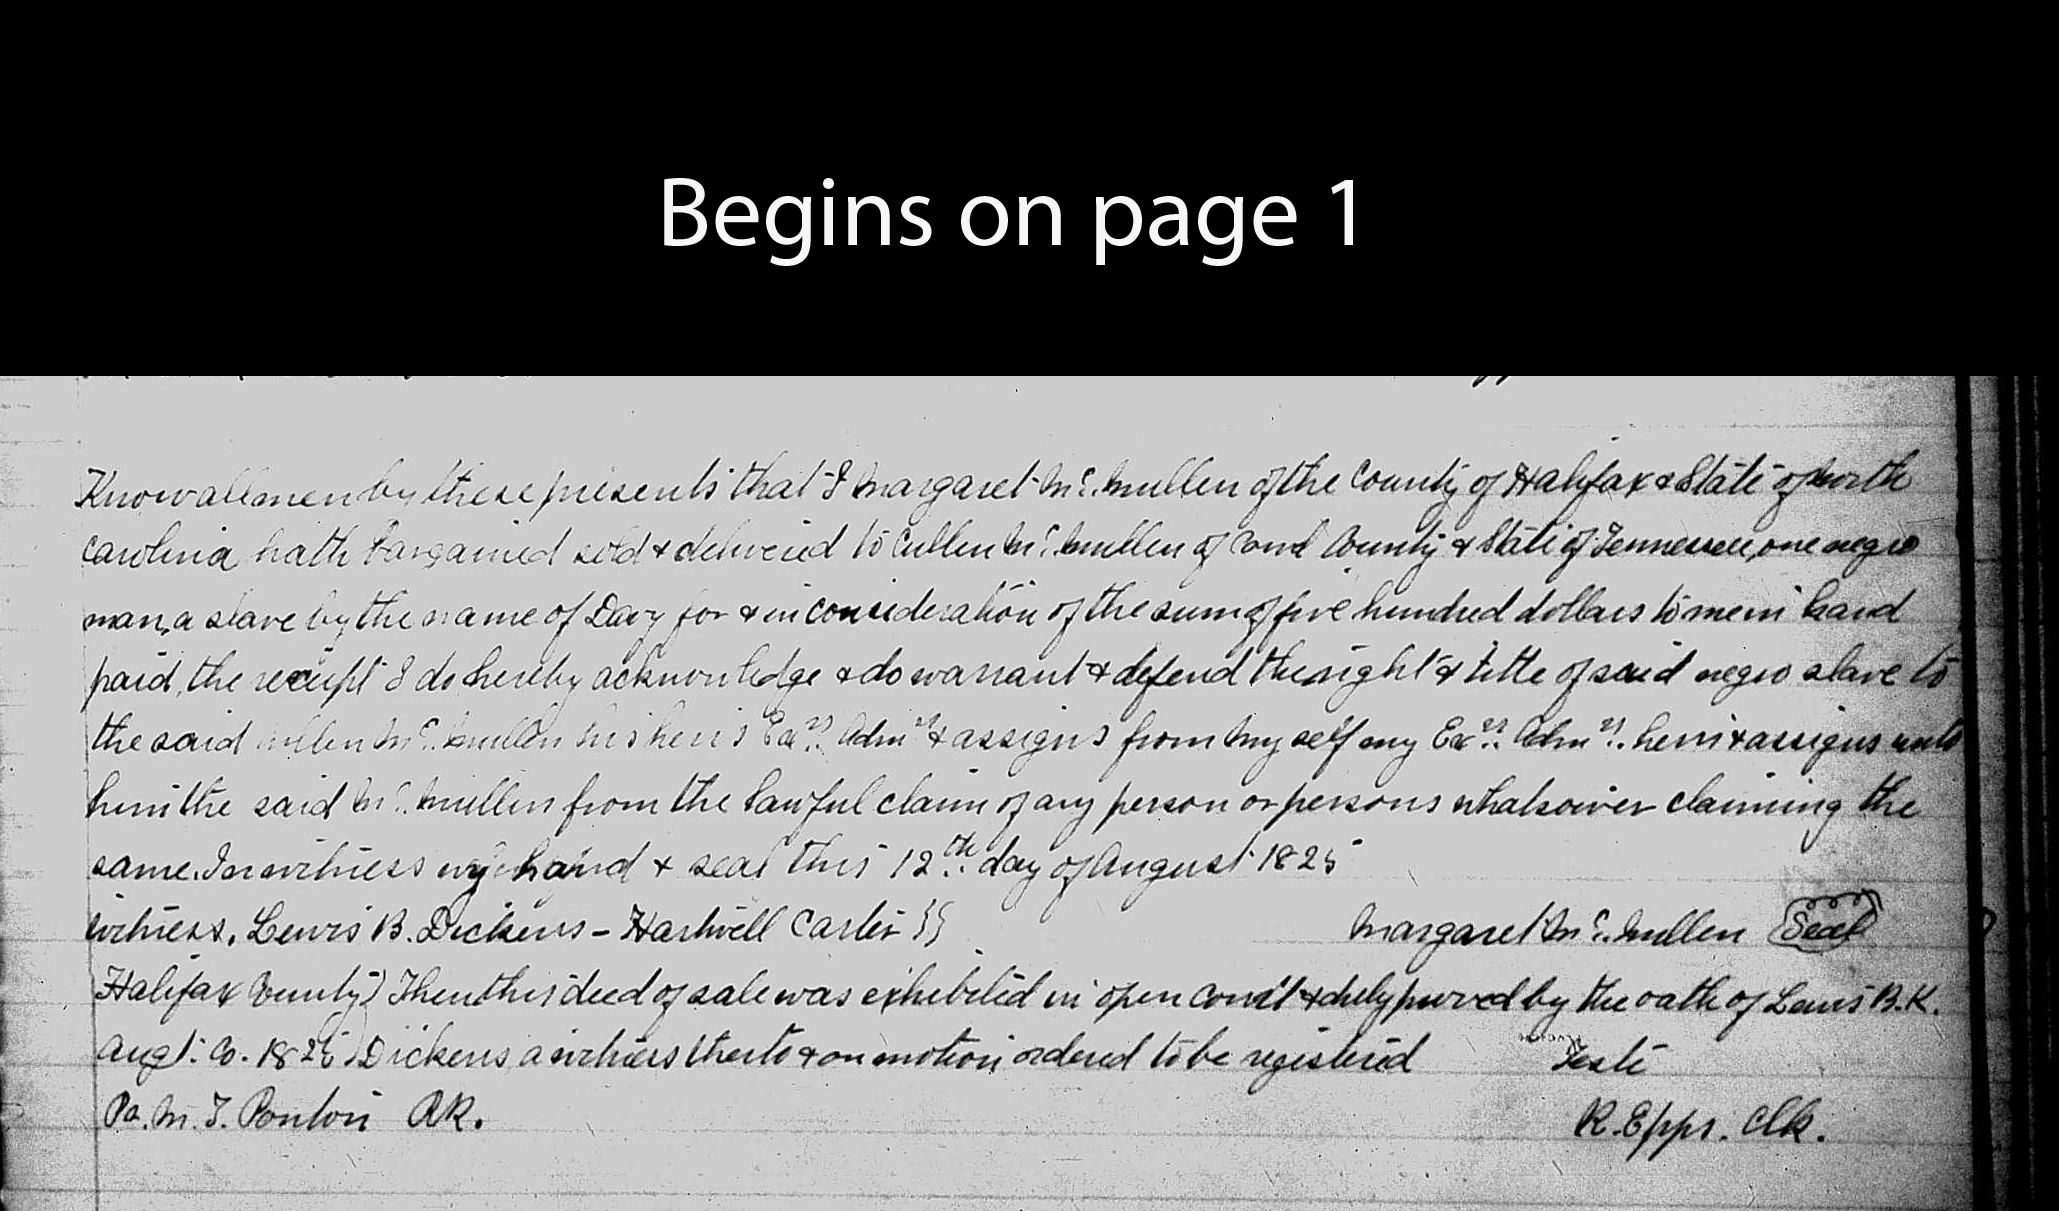 Begins on page 1
Know all men by these presents that I Margaret Mc.Mullen of the County of Halifax & State of North
Carolina hath bargained sold & delivered to Cullen Mc.Mullen of County & State of Tennessee, one negro
man, a slave by the name of Davy for & in consideration of the sum of five hundred dollars to me in hand
paid, the receipt I do hereby acknowledge & do warrant & defend the right & title of said negro slave to
the said Cullen Mc.Mullen his heirs Exrs. Admrs & assigns from my self my Exrs. Admrs. heirs & assigns unto
him the said Mc.Mullen from the lawful claim of any person or persons whatsoever claiming the
same. In witness my hand & seal this 12th. day of August 1825
witness. Lewis B. Dickens - Hartwell Carter }} Margaret Mc.Mullen Seal
Halifax County) Then this deed of sale was exhibited in open court & duly proved by the oath of Lewis B.K.
Augt. Co. 182 Dickens, a witness thereto & on motion ordered to be registered Teste
M. T. Ponton R. Epps. Clk.